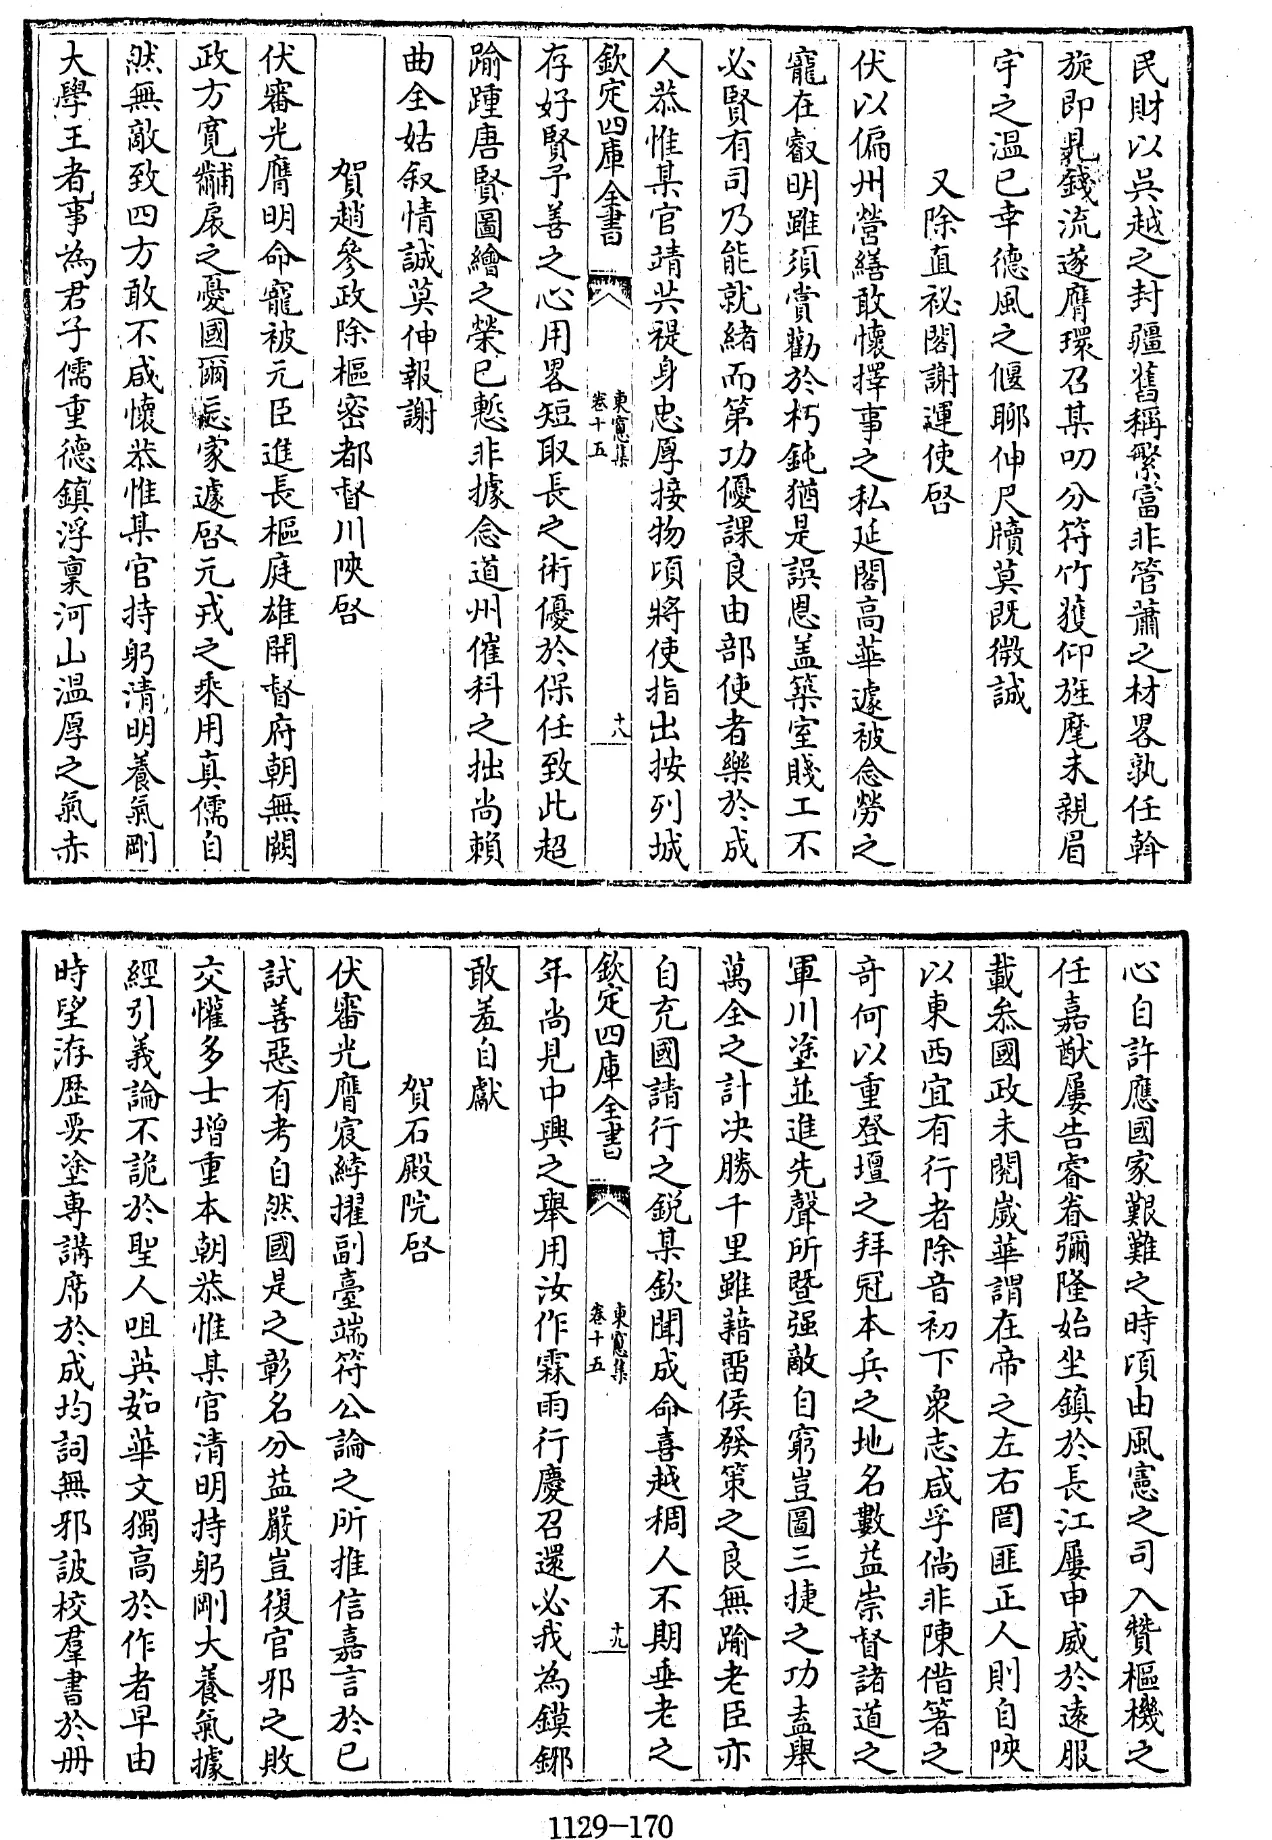 民財以吳越之封疆舊稱繁富非管蕭之材畧孰任幹
旋即見錢流遂膺環召某叨分符竹獲仰旌麾未親眉
宇之温已幸德風之偃聊伸尺牘莫既微誠
又除直祕閣謝運使啓
伏以偏州營繕敢懷擇事之私延閣高華遽被念勞之
寵在睿明雖須賞勸於朽鈍猶是誤恩盖築室賤工不
必賢有司乃能就緒而第功優課良由部使者樂於成
人恭惟某官靖共禔身忠厚接物頃將使指出按列城
欽定四庫全書
東窻集
卷十五
十八
存好賢予善之心用畧短取長之術優於保任致此超
踰踵唐賢圖繪之榮已慙非據念道州催科之拙尚賴
曲全姑叙情誠莫伸報謝
賀趙參政除樞密都督川陜啓
伏審光膺明命寵被元臣進長樞庭雄開督府朝無闕
政方寬黼扆之憂國爾忘家遽啓元戎之乘用真儒自
然無敵致四方敢不咸懷恭惟某官持躬清明養氣剛
大學王者事為君子儒重德鎮浮稟河山温厚之氣赤
心自許應國家艱難之時頃由風憲之司入贊樞機之
任嘉猷屢告睿眷彌隆始坐鎮於長江屢申威於遠服
載叅國政未閱歲華謂在帝之左右罔匪正人則自陜
以東西宜有行者除音初下衆志咸孚倘非陳借箸之
奇何以重登壇之拜冠本兵之地名數益崇督諸道之
軍川塗並進先聲所暨强敵自窮豈圖三捷之功盍舉
萬全之計决勝千里雖藉畱侯發策之良無踰老臣亦
自充國請行之鋭某欽聞成命喜越稠人不期垂老之
欽定四庫全書
東窻集
卷十五
十九
年尚見中興之舉用汝作霖雨行慶召還必我為鏌鋣
敢羞自獻
賀石殿院啓
伏審光膺宸綍擢副臺端符公論之所推信嘉言於已
試善惡有考自然國是之彰名分益嚴豈復官邪之敗
交懽多士增重本朝恭惟某官清明持躬剛大養氣據
經引義論不詭於聖人咀英茹華文獨高於作者早由
時望洊歴要塗専講席於成均詞無邪詖校羣書於冊
1129-170